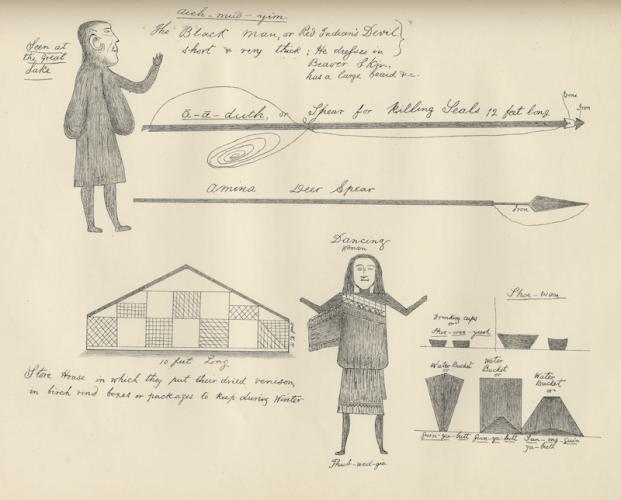 aich-mud-yim
The Black man, or Red Indian's Devil
short & very thick; He dresses in
Beaver Skin,
has a large beard &c.
Seen at
the great
Lake
a-a-duth, or Spear for Killing Seals 12 feet long
Bone
Iron
amina Deer Spear
Iron
Dancing
Woman
Drinking cups
or
Shoe-wan
10 feet Long
Store House in which they put their dried venison
in birch rind boxes or packages to keep during Winter
Water Bucket
or
Water
Bucket
or
Water
Bucket
or